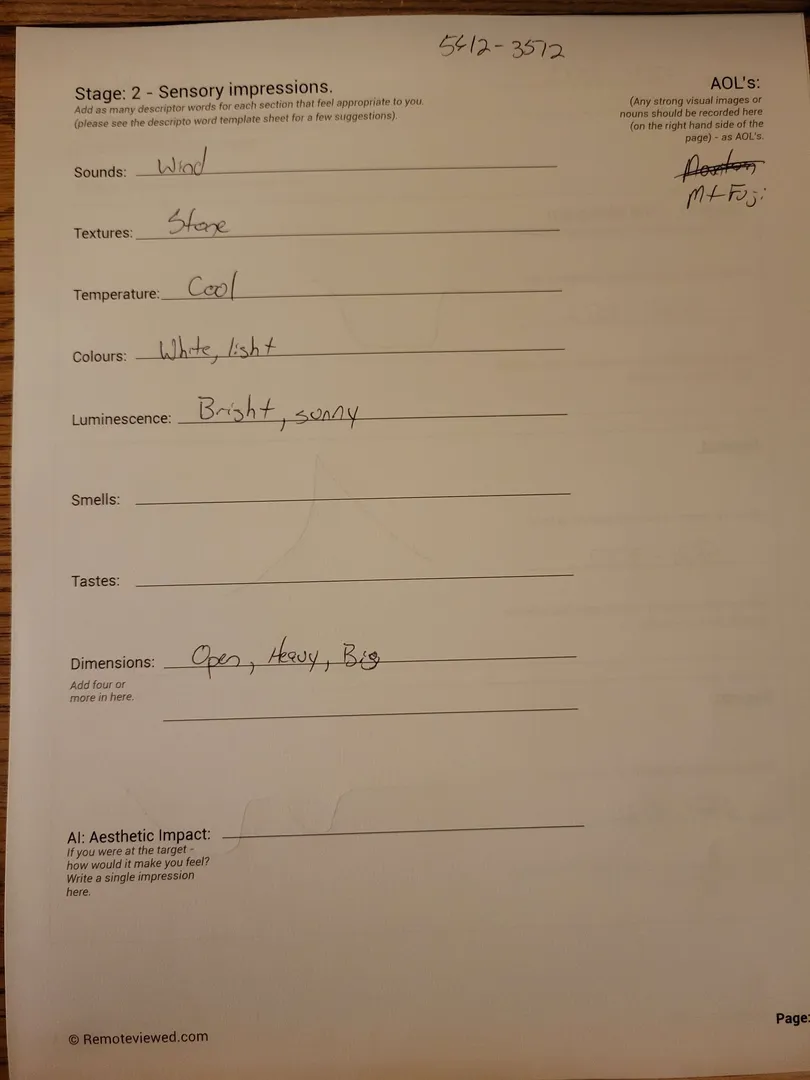 5412-3572
Stage: 2 - Sensory impressions.
Add as many descriptor words for each section that feel appropriate to you.
(please see the descripto word template sheet for a few suggestions).
AOL's:
(Any strong visual images or
nouns should be recorded here
(on the right hand side of the
page) - as AOL's.
Mt Fuji
Sounds: Wind
Textures: Stone
Temperature: Cool
Colours: White, light
Luminescence: Bright, sunny
Smells:
Tastes:
Dimensions: Open, Heavy, Big
Add four or
more in here.
AI: Aesthetic Impact:
If you were at the target -
how would it make you feel?
Write a single impression
here.
Page:
© Remoteviewed.com